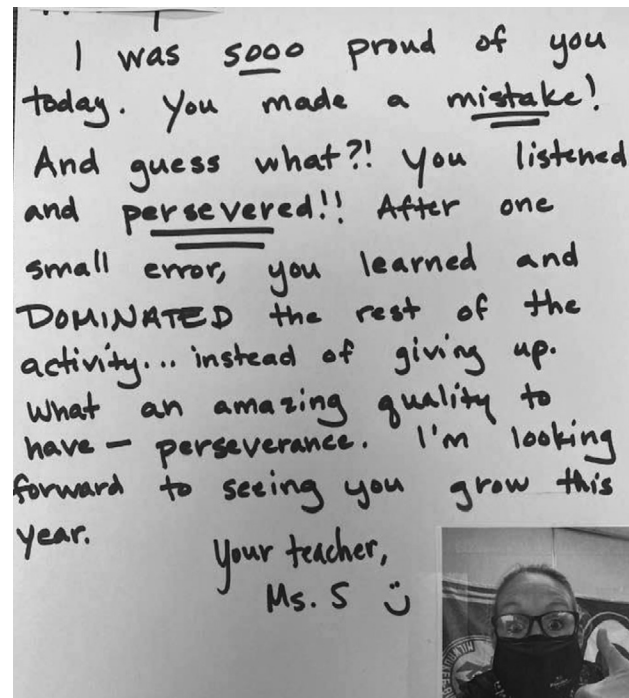 I was sooo proud of you
today. You made a mistake!
And guess what?! You listened
and persevered!! After one
small error, you learned and
DOMINATED the rest of the
activity... instead of giving up.
What an amazing quality to
have — perseverance. I'm looking
forward to seeing you grow this
year.
Your teacher,
Ms. S